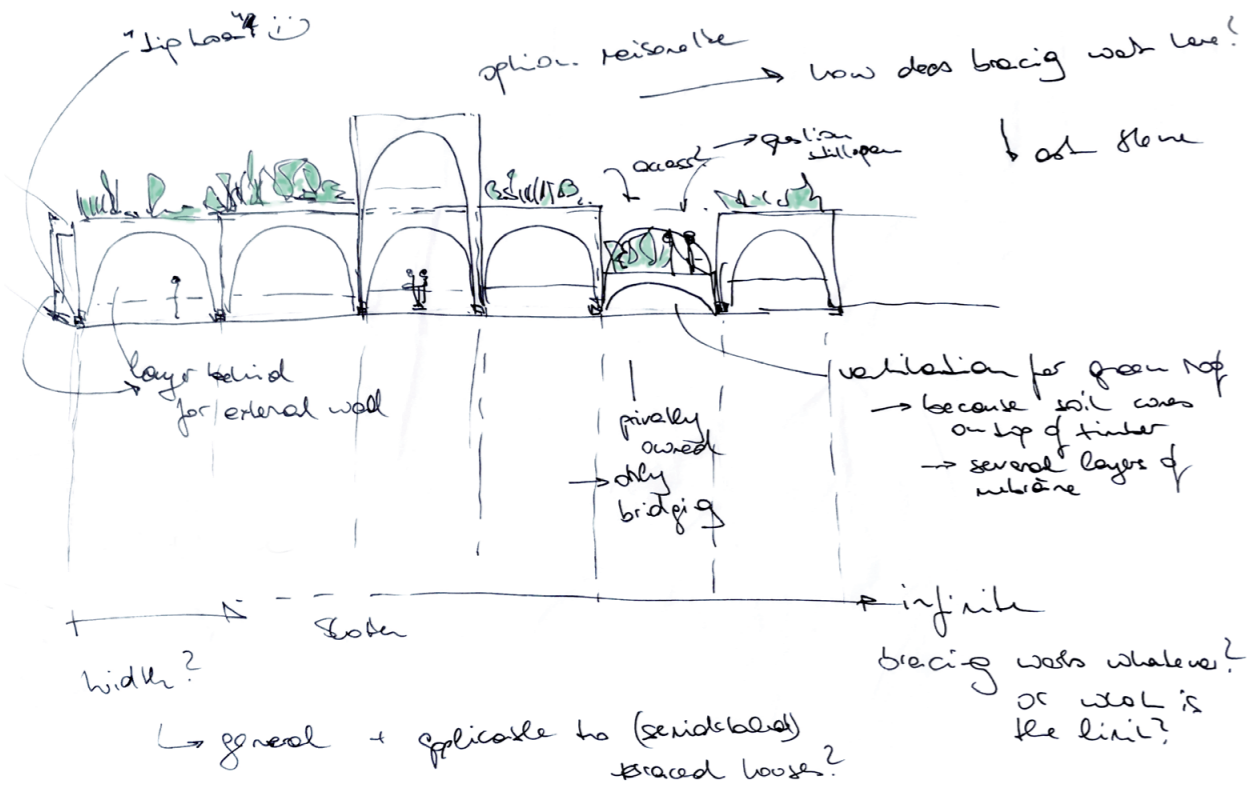 option
how does bracing work here?
access?
question
still open
ask
layer behind
for external wall
privately
owned
only
bridging
ventilation for green roof
because soil comes
on top of timber
several layers of
infinite
width?
bracing works whatever?
or what is
the limit?
general + applicable to
houses?